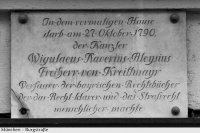 In dem vormaligen Hause
starb am 27. Oktober 1790
der Kanzler
Wiguläus Xaverius Aloysius
Freiherr von Kreittmayr
Verfasser der bayrischen Rechtsbücher
der das Recht klarer und das Strafrecht
menschlicher machte
München - Burgstraße